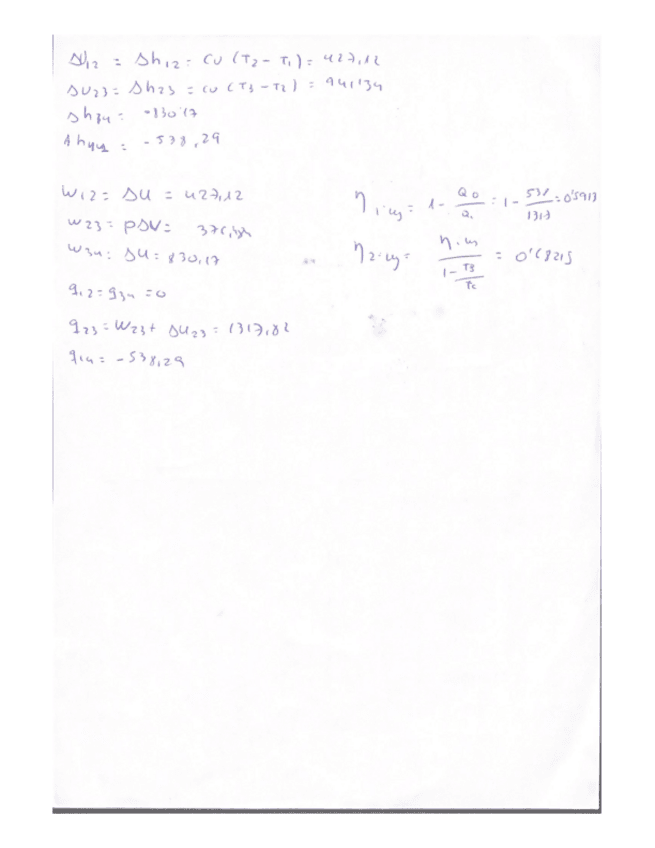 ΔU12 = Δh12 = cv (T2 - T1) = 427,12
ΔU23 = Δh23 = cv (T3 - T2) = 941'34
Δh34 = -830'17
Δh41 = -538,29
W12 = ΔU = 427,12
W23 = pΔV =
W34 = ΔU = 830,17
q12 = q34 = 0
q23 = W23 + ΔU23 = 1317,82
q14 = -538,29
η1ª ley = 1 - Q0/Q1 = 1 - 538/1317 = 0'5913
η2ª ley = / 1 - = 0'6821